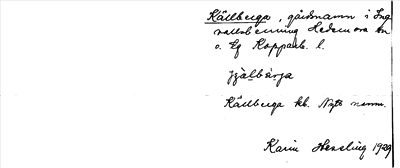 Källberga, gårdsnamn i Ing
vallsbenning Hedemora sn
o. Eg Kopparb. l.
Källberga kb. Nytt namn.
Karin Hessling 1929